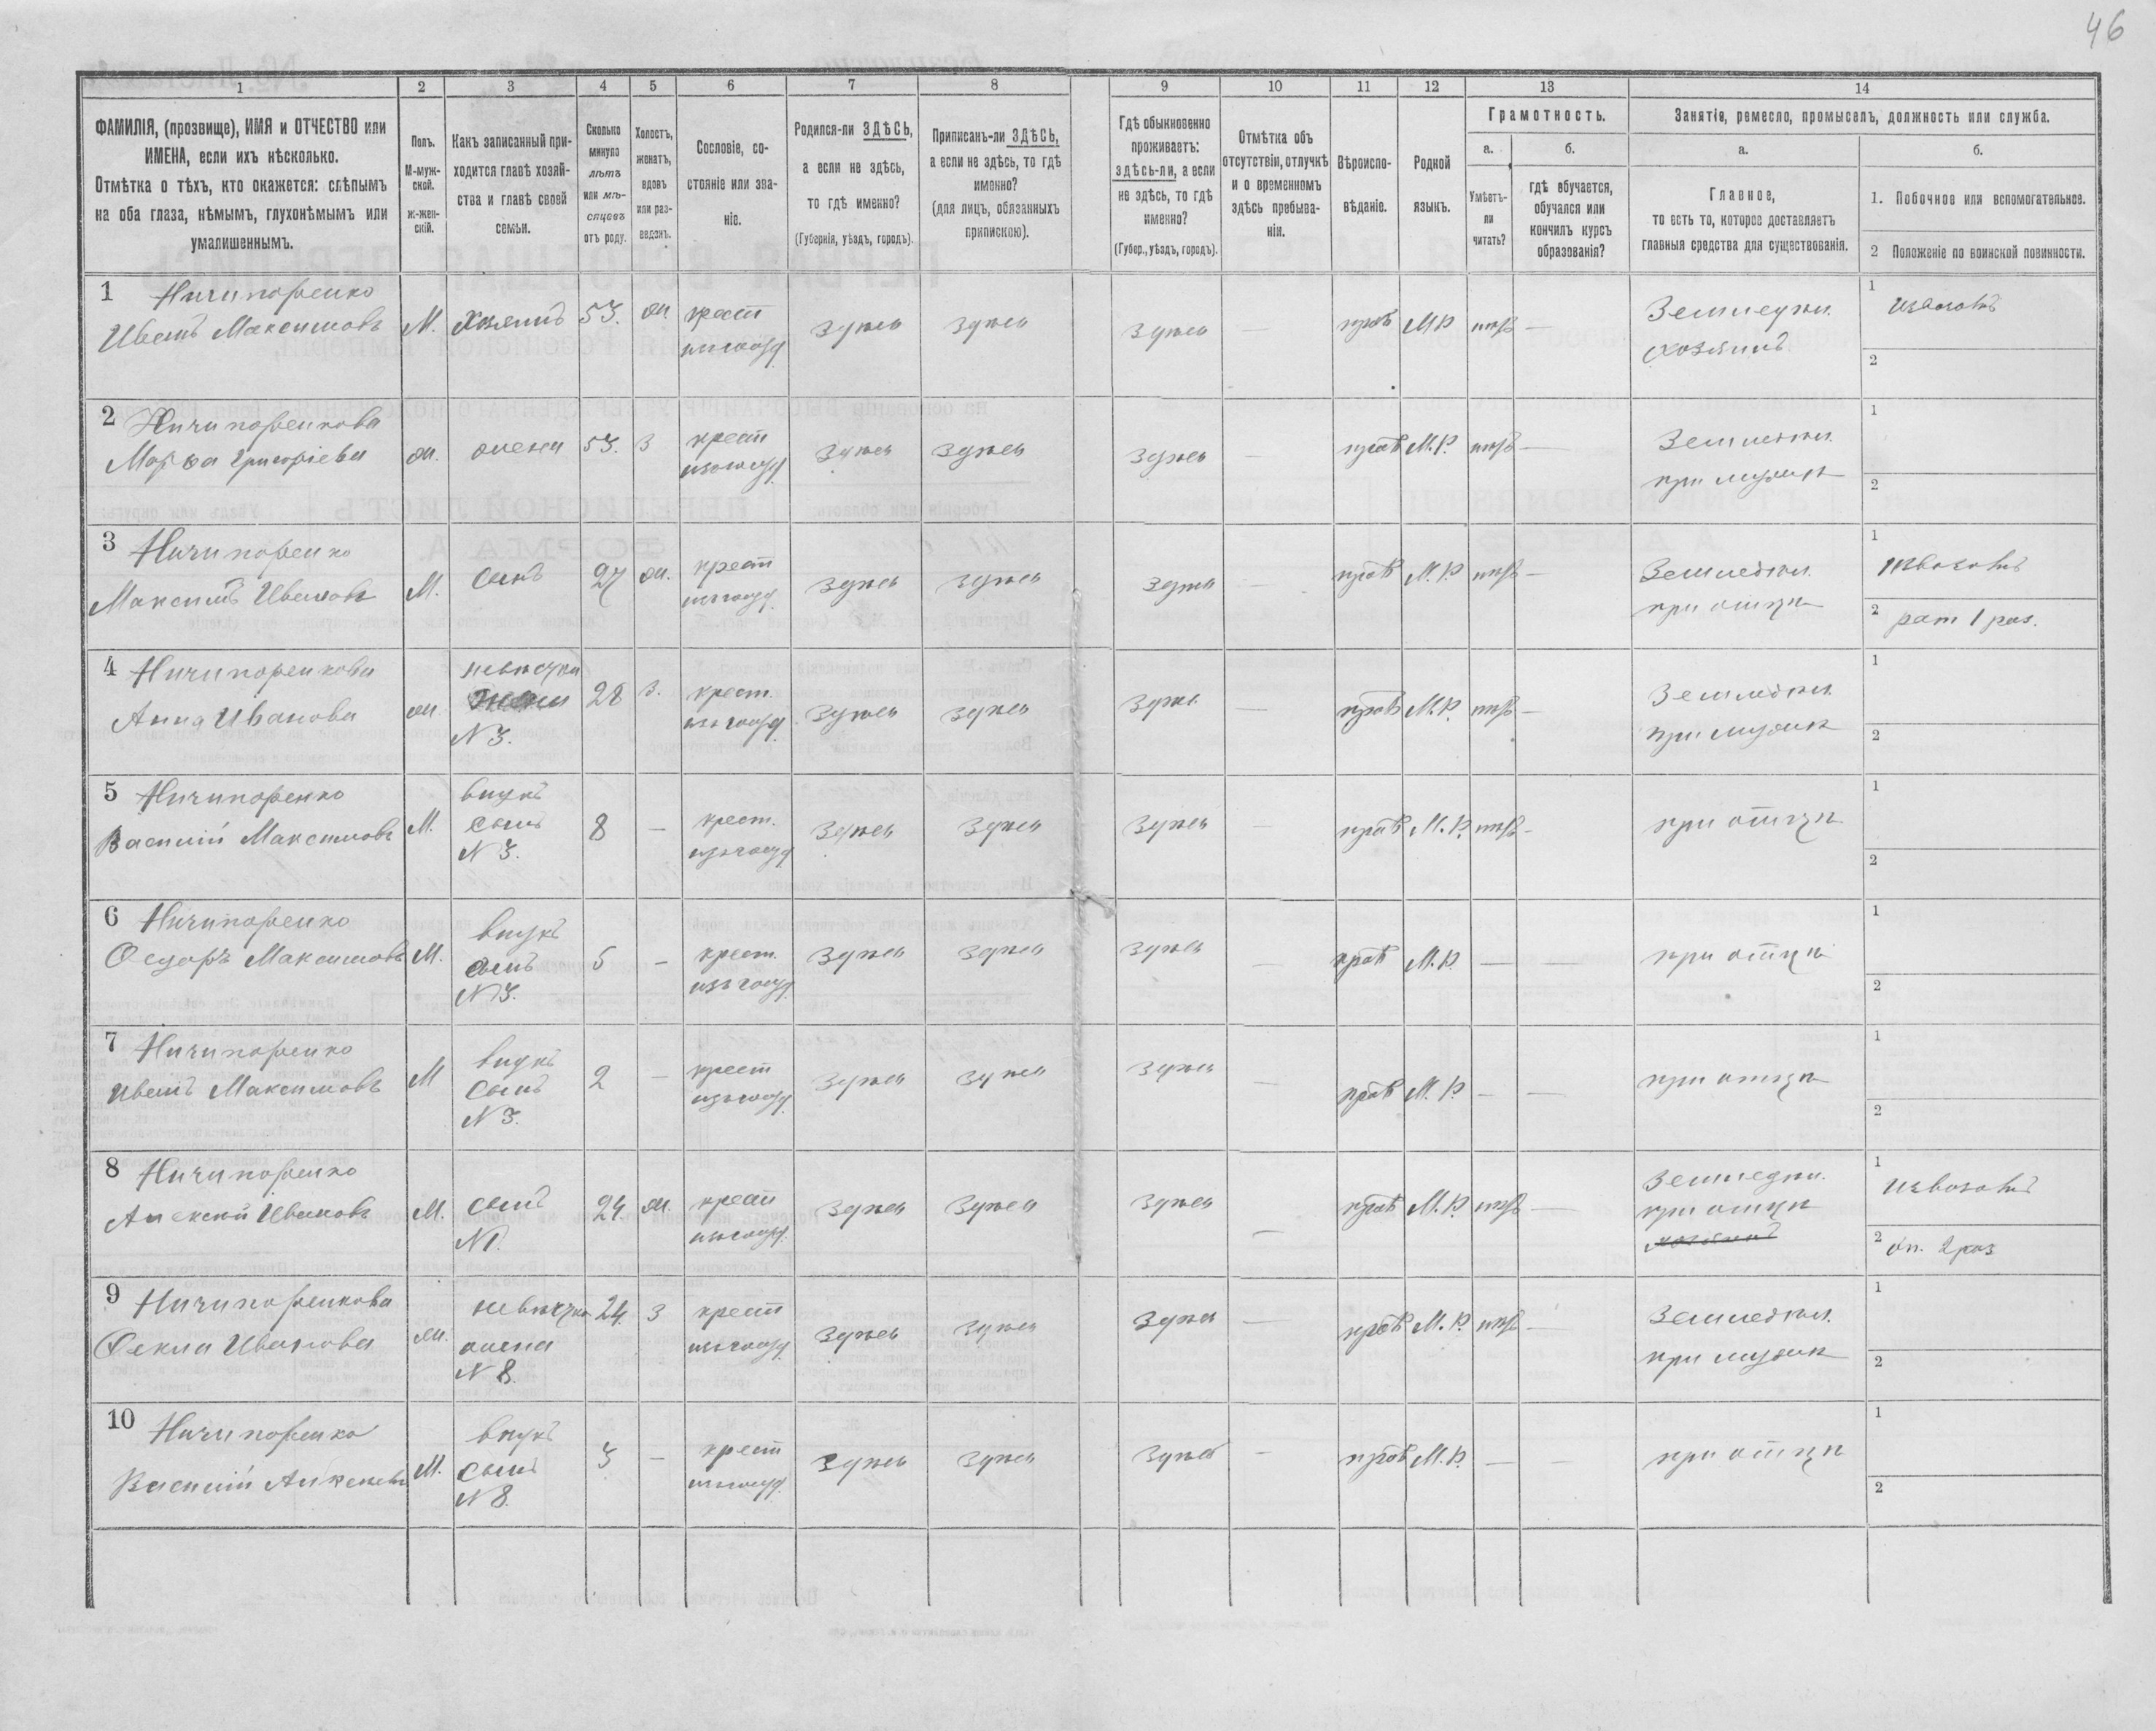 46
1 2 3 4 5 6 7 8 9 10 11 12 13 14
ФАМИЛІЯ, (прозвище), ИМЯ и ОТЧЕСТВО или
ИМЕНА, если ихъ нѣсколько.
Отмѣтка о тѣхъ, кто окажется: слѣпымъ
на оба глаза, нѣмымъ, глухонѣмымъ или
умалишеннымъ.
Полъ.
М-муж-
ской.
ж-жен-
скій.
Какъ записанный при-
ходится главѣ хозяй-
ства и главѣ своей
семьи.
Сколько
минуло
лѣтъ
или мѣ-
сяцевъ
отъ роду.
Холостъ,
женатъ,
вдовъ
или раз-
веденъ.
Сословіе, со-
стояніе или зва-
ніе.
Родился-ли ЗДѢСЬ,
а если не здѣсь,
то гдѣ именно?
(Губернія, уѣздъ, городъ).
Приписанъ-ли ЗДѢСЬ,
а если не здѣсь, то гдѣ
именно?
(для лицъ, обязанныхъ
припискою).
Гдѣ обыкновенно
проживаетъ:
здѣсь-ли, а если
не здѣсь, то гдѣ
именно?
(Губер., уѣздъ, городъ).
Отмѣтка объ
отсутствіи, отлучкѣ
и о временномъ
здѣсь пребыва-
ніи.
Вѣроиспо-
вѣданіе.
Родной
языкъ.
Грамотность.
а.
Умѣетъ-
ли
читать?
б.
гдѣ обучается,
обучался или
кончилъ курсъ
образованія?
Занятіе, ремесло, промыселъ, должность или служба.
а.
Главное,
то есть то, которое доставляетъ
главныя средства для существованія.
б.
1. Побочное или вспомогательное.
2 Положеніе по воинской повинности.
1 Ничипоренко
Иванъ Максимовъ М. Хозяинъ 53. ж. крест
изъ госуд. здѣсь здѣсь здѣсь — прав М.Р. нѣтъ —
Земледѣл.
хозяинъ
1 Извозовъ
2
2 Ничипоренкова
Марѳа Григоріева ж. жена 53. З крест
изъ госуд. здѣсь здѣсь здѣсь — прав М.Р. нѣтъ —
Земледѣл.
при мужѣ
1
2
3 Ничипоренко
Максимъ Ивановъ М. сынъ 27 ж. крест
изъ госуд. здѣсь здѣсь здѣсь — прав М.Р. нѣтъ —
Земледѣл.
при отцѣ
1 Извозовъ
2 рат 1 раз.
4 Ничипоренкова
Анна Иванова ж. невѣстка
жена
N 3. 28 З. крест.
изъ госуд. здѣсь здѣсь здѣсь — прав М.Р. нѣтъ —
Земледѣл.
при мужѣ
1
2
5 Ничипоренко
Василій Максимовъ М. внукъ
сынъ
N 3. 8 — крест.
изъ госуд. здѣсь здѣсь здѣсь — прав М.Р. нѣтъ —
при отцѣ
1
2
6 Ничипоренко
Ѳедоръ Максимовъ М. внукъ
сынъ
N 3. 5 — крест.
изъ госуд. здѣсь здѣсь здѣсь — прав М.Р. — —
при отцѣ
1
2
7 Ничипоренко
Иванъ Максимовъ М внукъ
сынъ
N 3. 2 — крест
изъ госуд. здѣсь здѣсь здѣсь — прав М.Р. — —
при отцѣ
1
2
8 Ничипоренко
Алексѣй Ивановъ М. сынъ
N 1. 24. ж. крест
изъ госуд. здѣсь здѣсь здѣсь — прав М.Р. нѣтъ —
Земледѣл.
при отцѣ
хозяинъ
1 Извозовъ
2 оп. 2 раз
9 Ничипоренкова
Ѳекла Иванова ж. невѣстка
жена
N 8. 24. З крест
изъ госуд. здѣсь здѣсь здѣсь — прав М.Р. нѣтъ —
Земледѣл.
при мужѣ
1
2
10 Ничипоренко
Василій Алексѣевъ М. внукъ
сынъ
N 8. 3 — крест
изъ госуд. здѣсь здѣсь здѣсь — прав М.Р. — —
при отцѣ
1
2